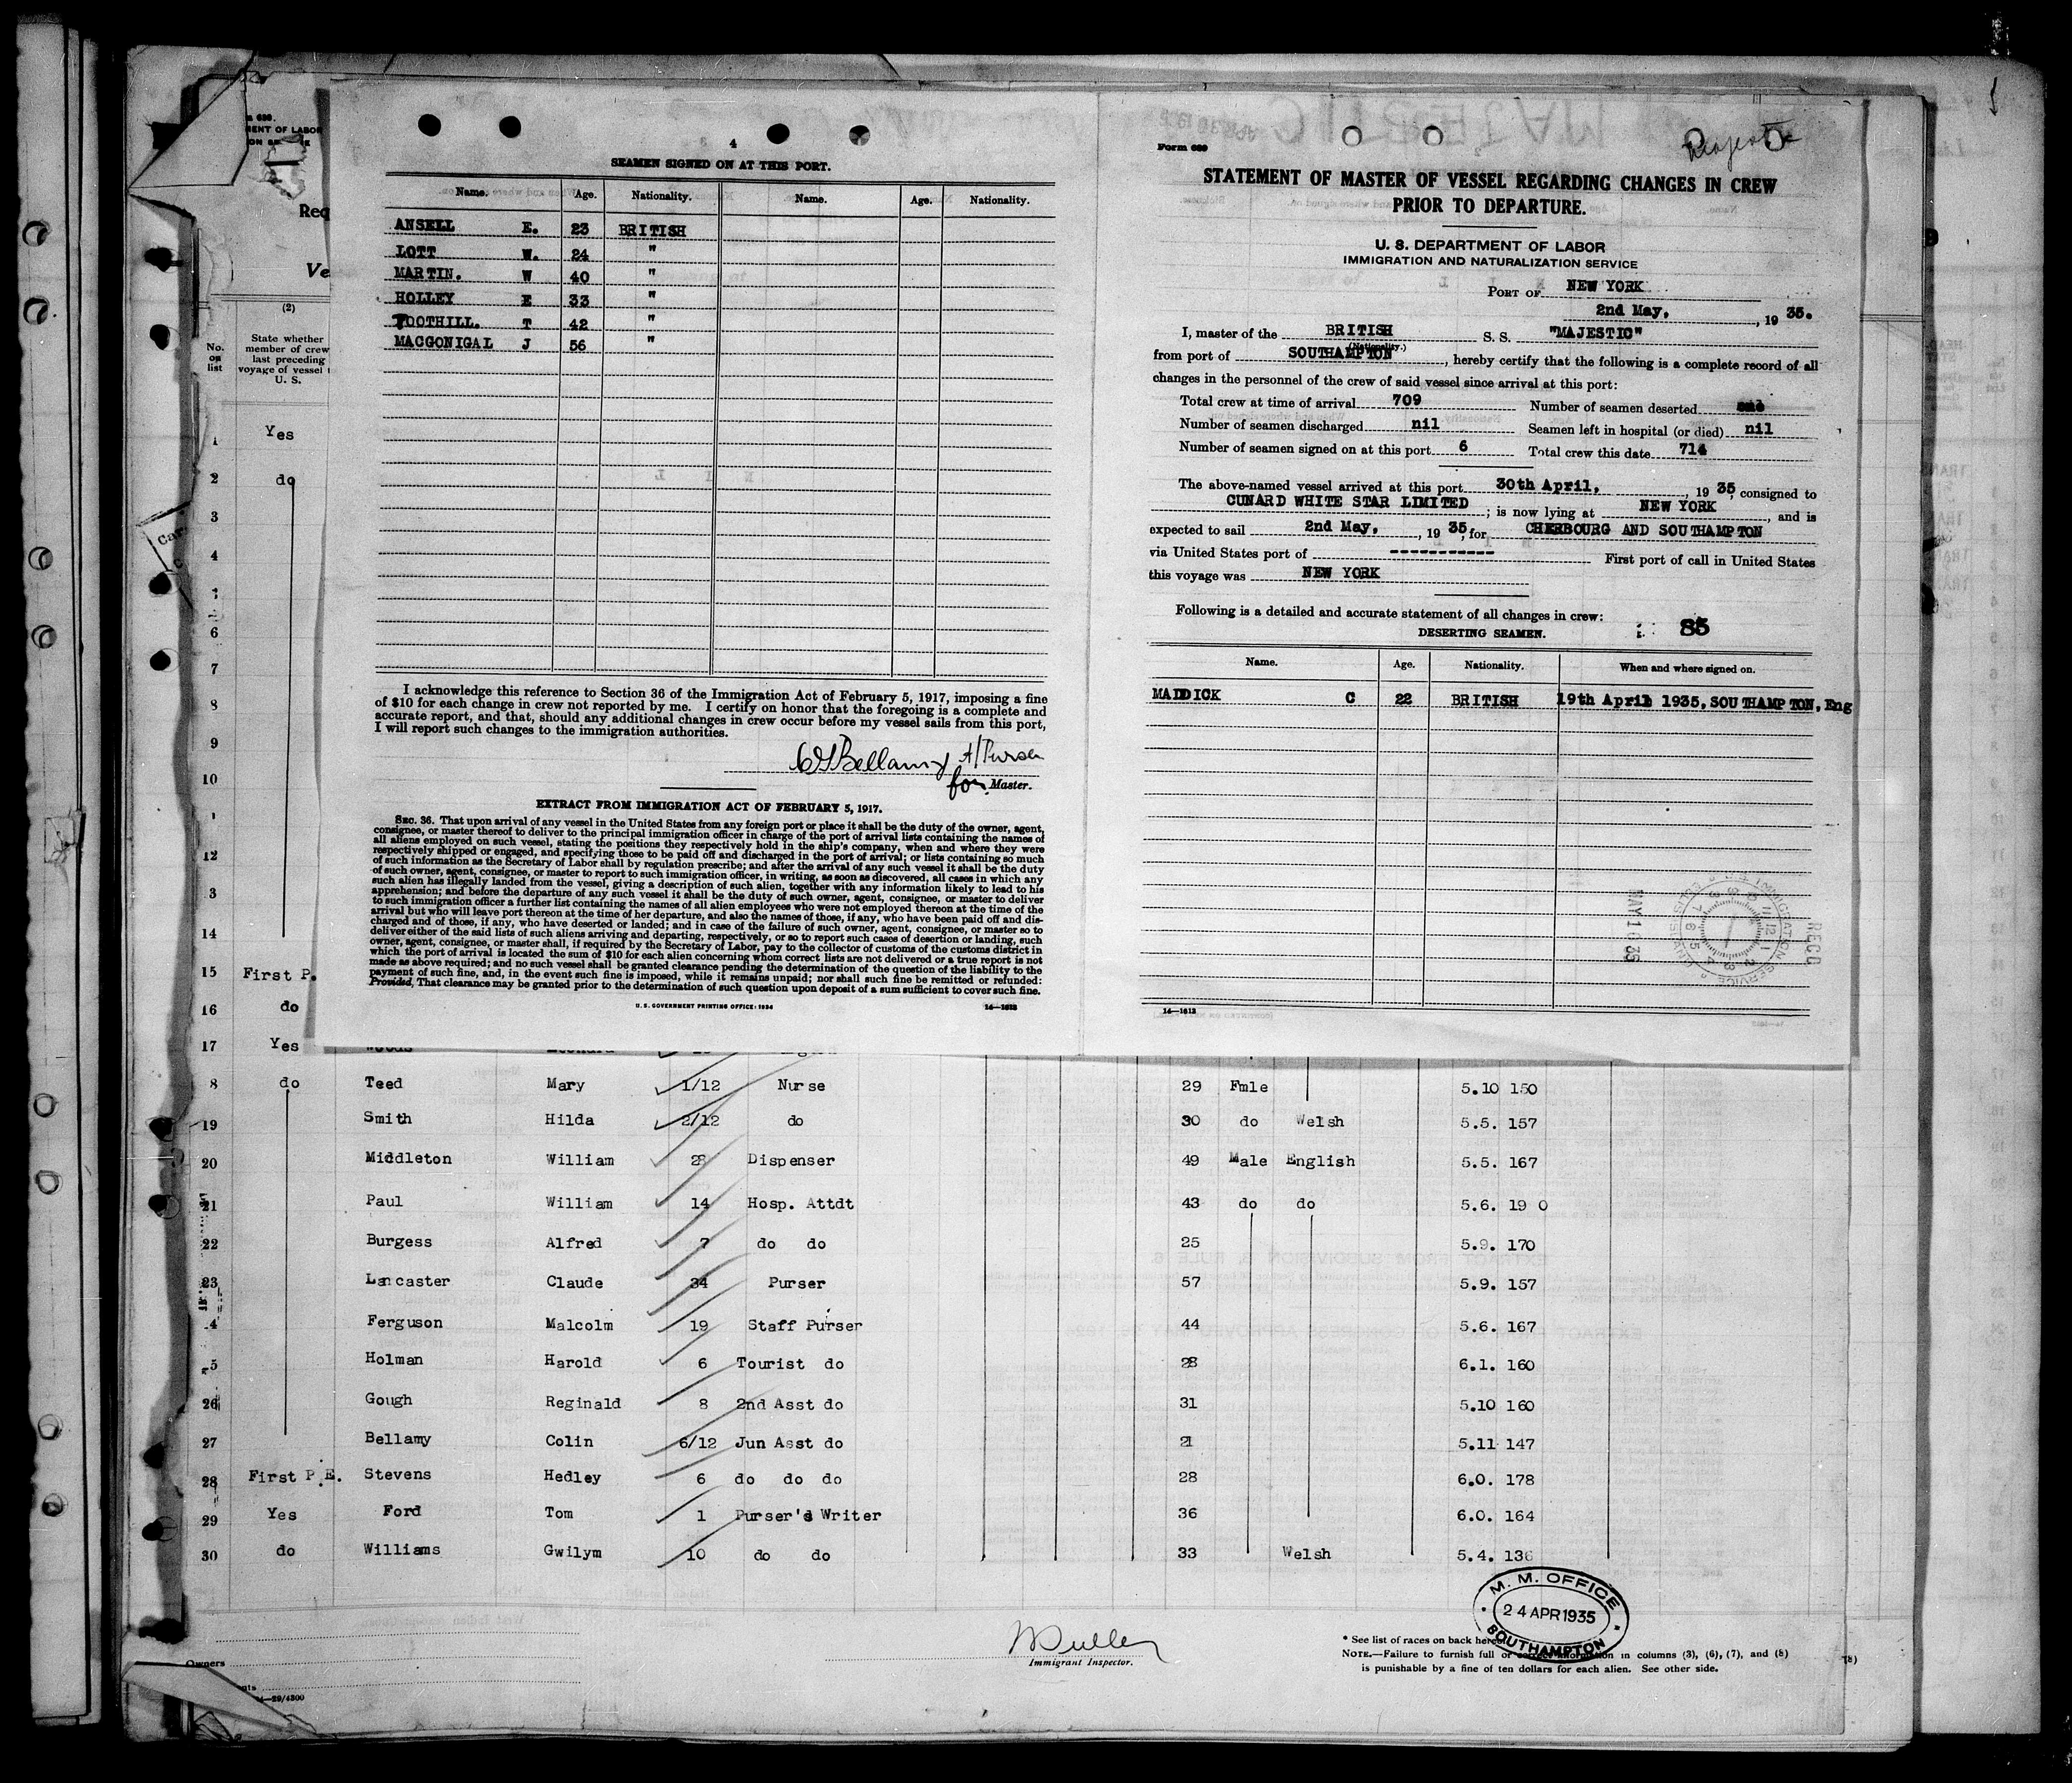 4
SEAMEN SIGNED ON AT THIS PORT.
Name. Age. Nationality. Name. Age. Nationality.
ANSELL E. 23 BRITISH
LOTT W. 24 "
MARTIN. W 40 "
HOLLEY E 33 "
TOOTHILL. T 42 "
MACGONIGAL J 56 "
I acknowledge this reference to Section 36 of the Immigration Act of February 5, 1917, imposing a fine
of $10 for each change in crew not reported by me. I certify on honor that the foregoing is a complete and
accurate report, and that, should any additional changes in crew occur before my vessel sails from this port,
I will report such changes to the immigration authorities.
Bellamy A/Purser
for Master.
EXTRACT FROM IMMIGRATION ACT OF FEBRUARY 5, 1917.
SEC. 36. That upon arrival of any vessel in the United States from any foreign port or place it shall be the duty of the owner, agent,
consignee, or master thereof to deliver to the principal immigration officer in charge of the port of arrival lists containing the names of
all aliens employed on such vessel, stating the positions they respectively hold in the ship's company, when and where they were
respectively shipped or engaged, and specifying those to be paid off and discharged in the port of arrival; or lists containing so much
of such information as the Secretary of Labor shall by regulation prescribe; and after the arrival of any such vessel it shall be the duty
of such owner, agent, consignee, or master to report to such immigration officer, in writing, as soon as discovered, all cases in which any
such alien has illegally landed from the vessel, giving a description of such alien, together with any information likely to lead to his
apprehension; and before the departure of any such vessel it shall be the duty of such owner, agent, consignee, or master to deliver
to such immigration officer a further list containing the names of all alien employees who were not employed thereon at the time of the
arrival but who will leave port thereon at the time of her departure, and also the names of those, if any, who have been paid off and dis-
charged and of those, if any, who have deserted or landed; and in case of the failure of such owner, agent, consignee, or master so to
deliver either of the said lists of such aliens arriving and departing, respectively, or so to report such cases of desertion or landing, such
owner, agent, consignee, or master shall, if required by the Secretary of Labor, pay to the collector of customs of the customs district in
which the port of arrival is located the sum of $10 for each alien concerning whom correct lists are not delivered or a true report is not
made as above required; and no such vessel shall be granted clearance pending the determination of the question of the liability to the
payment of such fine, and, in the event such fine is imposed, while it remains unpaid; nor shall such fine be remitted or refunded:
Provided, That clearance may be granted prior to the determination of such question upon deposit of a sum sufficient to cover such fine.
U. S. GOVERNMENT PRINTING OFFICE: 1934 14—1613
Form 689
Majestic
STATEMENT OF MASTER OF VESSEL REGARDING CHANGES IN CREW
PRIOR TO DEPARTURE.
U. S. DEPARTMENT OF LABOR
IMMIGRATION AND NATURALIZATION SERVICE
PORT OF NEW YORK
2nd May, , 19 35.
I, master of the BRITISH S. S. "MAJESTIC"
(Nationality.)
from port of SOUTHAMPTON , hereby certify that the following is a complete record of all
changes in the personnel of the crew of said vessel since arrival at this port:
Total crew at time of arrival 709 Number of seamen deserted one
Number of seamen discharged nil Seamen left in hospital (or died) nil
Number of seamen signed on at this port 6 Total crew this date 714
The above-named vessel arrived at this port 30th April, , 19 35, consigned to
CUNARD WHITE STAR LIMITED ; is now lying at NEW YORK , and is
expected to sail 2nd May, , 19 35, for CHERBOURG AND SOUTHAMPTON
via United States port of ----------- First port of call in United States
this voyage was NEW YORK
Following is a detailed and accurate statement of all changes in crew:
DESERTING SEAMEN. 85
Name. Age. Nationality. When and where signed on.
MADDICK C 22 BRITISH 19th April 1935, SOUTHAMPTON, Eng
REC'D
U.S. IMMIGRATION SERVICE
MAY 16 35
14—1613
(2)
No. on list
State whether
member of crew
last preceding
voyage of vessel
U. S.
1 Yes
2 do
3
4
6
7
8
9
10
12
3
14
15 First P.
16 do
17 Yes Woods Leonard
8 do Teed Mary 1/12 Nurse 29 Fmle 5.10 150
19 Smith Hilda 2/12 do 30 do Welsh 5.5. 157
20 Middleton William 28 Dispenser 49 Male English 5.5. 167
21 Paul William 14 Hosp. Attdt 43 do do 5.6. 19 0
22 Burgess Alfred 7 do do 25 5.9. 170
23 Lancaster Claude 34 Purser 57 5.9. 157
4 Ferguson Malcolm 19 Staff Purser 44 5.6. 167
5 Holman Harold 6 Tourist do 28 6.1. 160
26 Gough Reginald 8 2nd Asst do 31 5.10 160
27 Bellamy Colin 6/12 Jun Asst do 21 5.11 147
28 First P.E. Stevens Hedley 6 do do do 28 6.0. 178
29 Yes Ford Tom 1 Purser's Writer 36 6.0. 164
30 do Williams Gwilym 10 do do 33 Welsh 5.4. 136
M. M. OFFICE
24 APR 1935
SOUTHAMPTON
Immigrant Inspector.
* See list of races on back hereof
NOTE.—Failure to furnish full or correct information in columns (3), (6), (7), and (8)
is punishable by a fine of ten dollars for each alien. See other side.
Owners